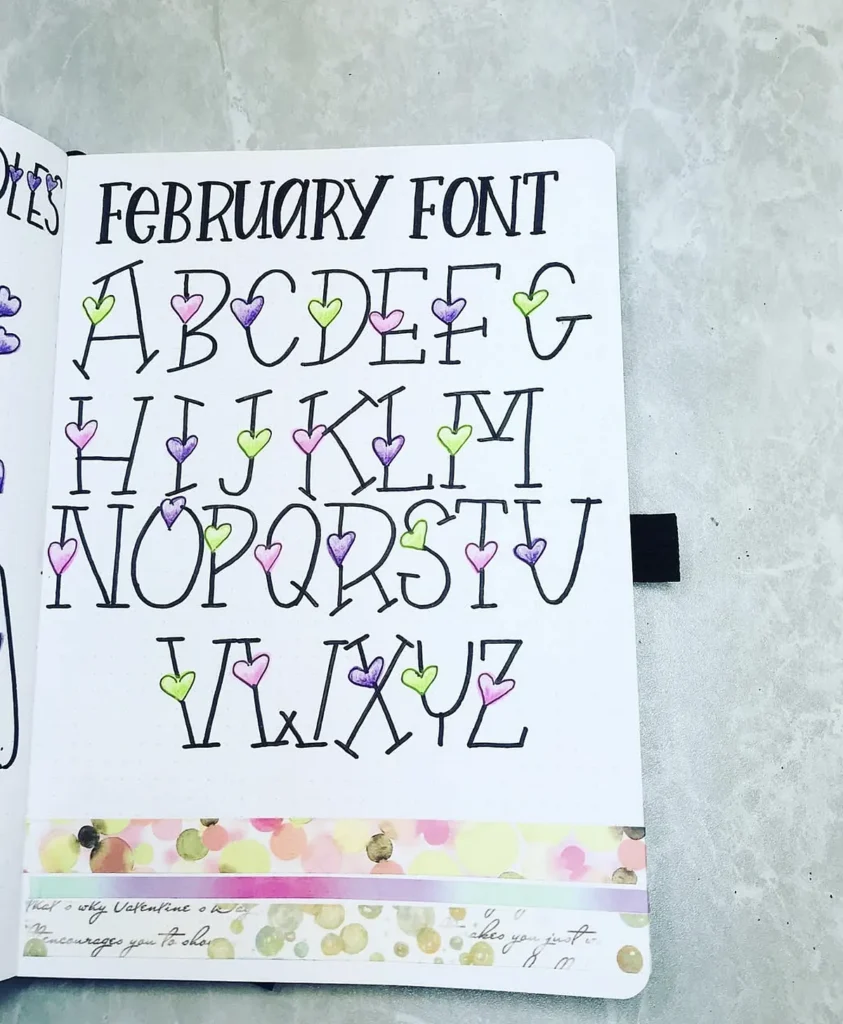 FeBRUaRY FONT
A B C D E F G
H I J K L M
N O P Q R S T U
V W X Y Z
that's why Valentine's
encourages you to
you just